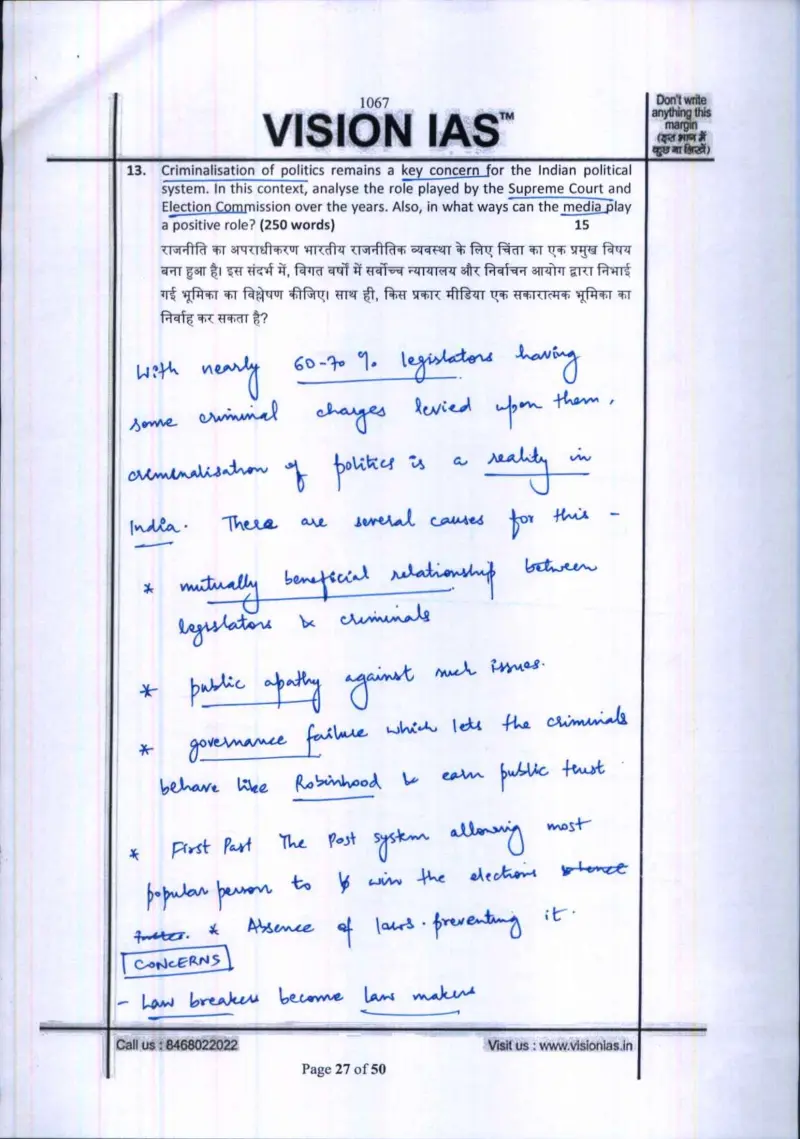 1067
VISION IAS™
Don't write
anything this
margin
(इस भाग में
कुछ ना लिखें)
13. Criminalisation of politics remains a key concern for the Indian political
system. In this context, analyse the role played by the Supreme Court and
Election Commission over the years. Also, in what ways can the media play
a positive role? (250 words) 15
राजनीति का अपराधीकरण भारतीय राजनीतिक व्यवस्था के लिए चिंता का एक प्रमुख विषय
बना हुआ है। इस संदर्भ में, विगत वर्षों में सर्वोच्च न्यायालय और निर्वाचन आयोग द्वारा निभाई
गई भूमिका का विश्लेषण कीजिए। साथ ही, किस प्रकार मीडिया एक सकारात्मक भूमिका का
निर्वाह कर सकता है?
With nearly 60-70 % legislators having
some criminal charges levied upon them,
criminalisation of politics is a reality in
India. There are several causes for this -
* mutually beneficial relationship between
legislators & criminals
* public apathy against such issues.
* governance failure which lets the criminals
behave like Robinhood & earn public trust
* First Past The Post system allowing most
popular person to win the elections
* Absence of laws preventing it.
CONCERNS
- Law breakers become law makers
Call us : 8468022022
Visit us : www.visionias.in
Page 27 of 50